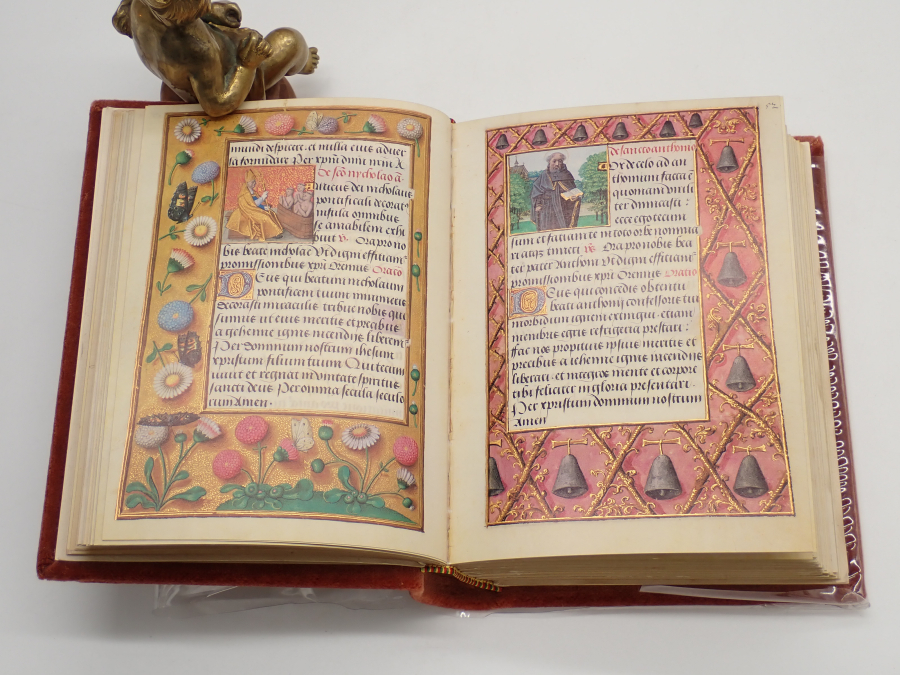 mundi despicere. et nulla eius aduer
sa formidare Per xpm dnm nrm A
De sco nycholao a
pontificali decorat
insula omnibus
bus
bis beate nicholae Vt digni efficiam
promissionibus xpi Oremus Oratio
Deus qui beatum nicholaum
pontificem tuum innumeris
decorasti miraculis tribue nobis que
simus ut eius meritis et precibus
a gehenne ignis incendiis liberem
Per dominum nostrum ihesum
xpristum filium tuum Qui tecum
uiuit et regnat in unitate spiritus
sancti deus Per omnia secula seculo
rum Amen.
de sancto anthonio
Vox de celo ad an
thonium facta e
quoniam viriliter
dimicasti :
ecce ego tecum
sum et faciam te in toto orbe nomina
ri Ora pro nobis bea
te pater Anthoni Vt digni efficiam
promissionibus xpi Oremus Oratio
Deus qui concedis obtentu
beati anthonij confessoris tui
morbidum ignem extingui . et am
membris egris refrigeria prestari :
fac nos propitius ipsius meritis et
precibus a gehenne ignis incendiis
liberari . et integros mente et corpore
tibi feliciter in gloria presentari .
Per xpristum dominum nostrum
Amen